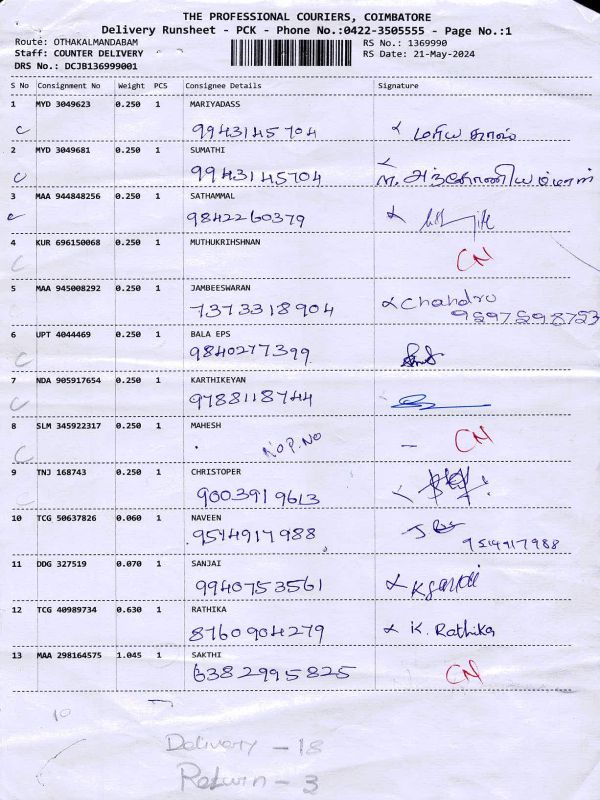 THE PROFESSIONAL COURIERS, COIMBATORE
Delivery Runsheet - PCK - Phone No.:0422-3505555 - Page No.:1
Route: OTHAKALMANDABAM RS No.: 1369990
Staff: COUNTER DELIVERY RS Date: 21-May-2024
DRS No.: DCJB136999001
S No Consignment No Weight PCS Consignee Details Signature
1 MYD 3049623 0.250 1 MARIYADASS
C 9943145704 மரிய தாஸ்
2 MYD 3049681 0.250 1 SUMATHI
C 9943145704
3 MAA 944848256 0.250 1 SATHAMMAL
C 9842260379
4 KUR 696150068 0.250 1 MUTHUKRIHSHNAN
C CN
5 MAA 945008292 0.250 1 JAMBEESWARAN
7373318904 Chandru
9597598753
6 UPT 4044469 0.250 1 BALA EPS
C 9840277399
7 NDA 905917654 0.250 1 KARTHIKEYAN
C 9788118744
8 SLM 345922317 0.250 1 MAHESH
C NO P.NO - CN
9 TNJ 168743 0.250 1 CHRISTOPER
9003919613
10 TCG 50637826 0.060 1 NAVEEN
9514917988
9514917988
11 DDG 327519 0.070 1 SANJAI
9940753561
12 TCG 40989734 0.630 1 RATHIKA
8760904279 K. Rathika
13 MAA 298164575 1.045 1 SAKTHI
6382995825 CN
10
Delivery - 18
Return - 3